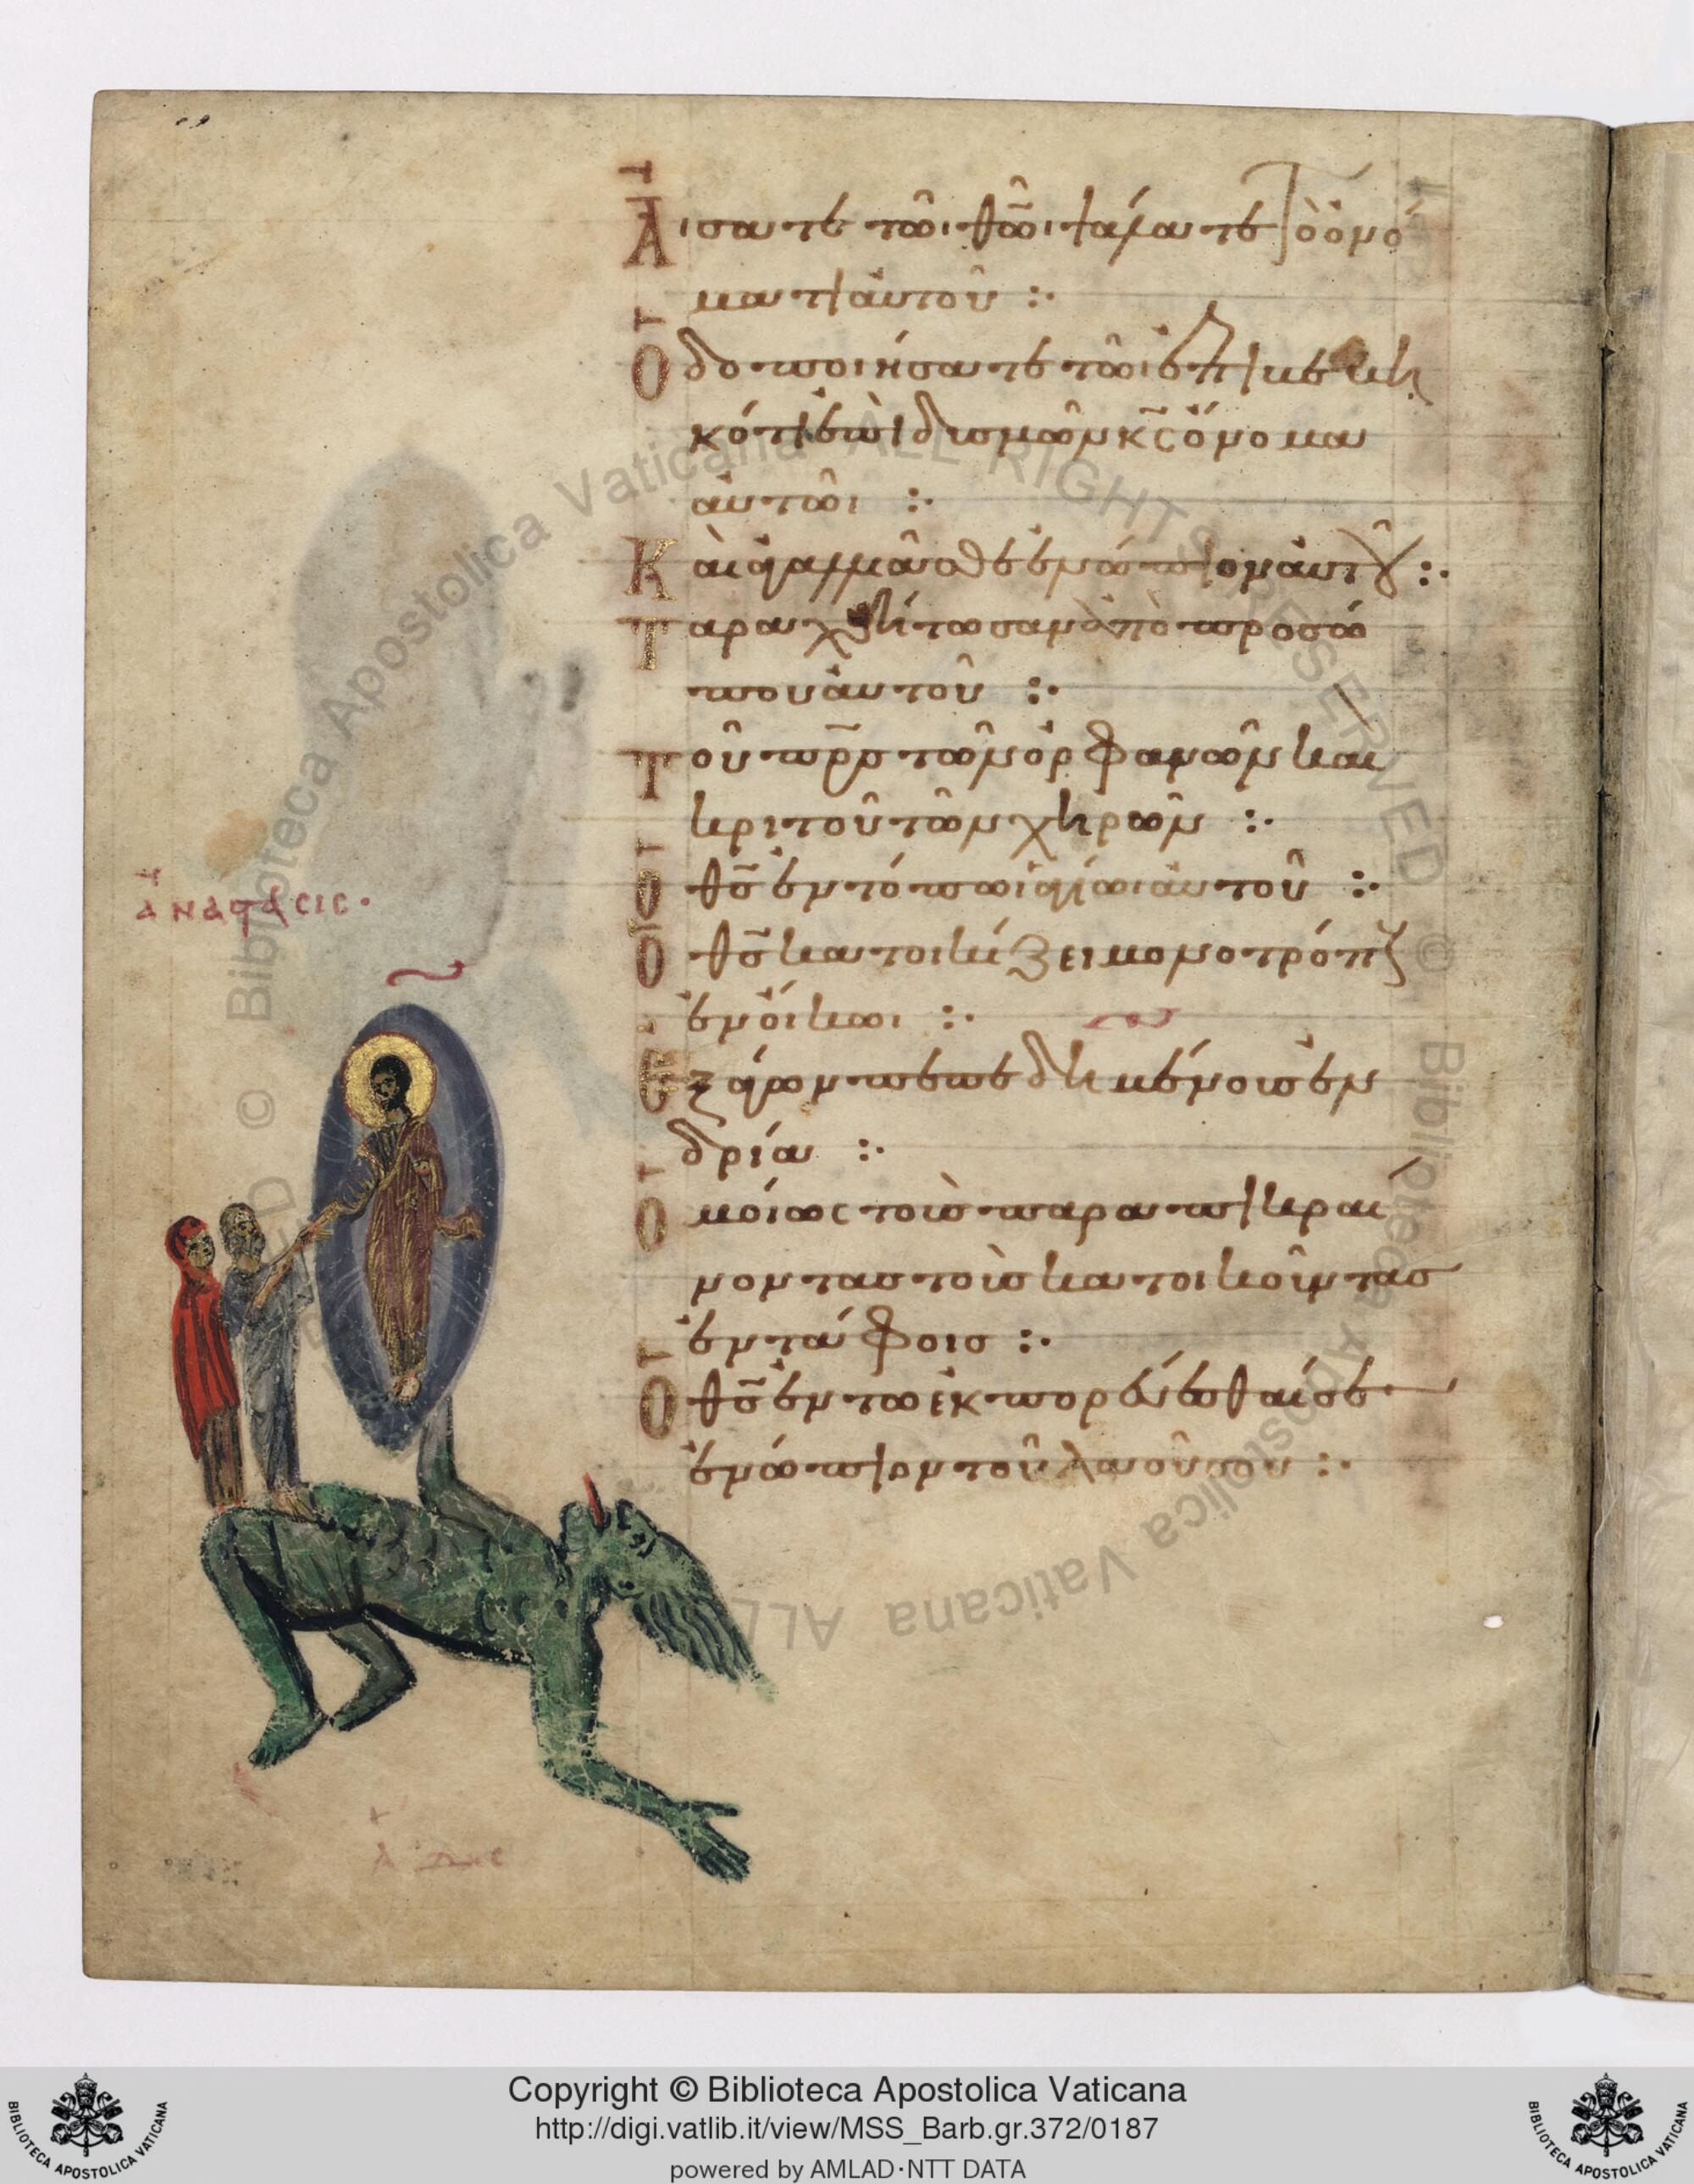 Ἄισατε τῶι θω̅ι ψάλατε τῶ ὀνό
ματι αὐτοῦ :·
Ὁδοποιήσατε τῶι ἐπιβεβη
κότι ἐπὶ δυσμῶν κ̅ς ὄνομα
αὐτῶι :·
Καὶ ἀγαλλιᾶσθε ἐνώπιον αὐτοῦ :·
Ταραχθήτωσαν ἀπὸ προσώ
που αὐτοῦ :·
Τοῦ π̅ρ̅ς τῶν ὀρφανῶν και
κριτοῦ τῶν χηρῶν :·
Ὁ θ̅ς ἐν τόπωι ἁγίωι αὐτοῦ :·
Ὁ θ̅ς κατοικίζει μονοτρόπους
ἐν οἴκωι :·
Ἐξάγων πεπεδημένους ἐν
ἀνδρία :·
Ὁμοίως τοὺς παραπικραί
νοντας τοὺς κατοικοῦντας
ἐν τάφοις :·
Ὁ θ̅ς ἐν τῶ ἐκπορεύεσθαί σε
ἐνώπιον τοῦ λαοῦ σου :·
ἀνάστασις·
ἅδης
Copyright © Biblioteca Apostolica Vaticana
http://digi.vatlib.it/view/MSS_Barb.gr.372/0187
powered by AMLAD·NTT DATA
BIBLIOTECA APOSTOLICA VATICANA
BIBLIOTECA APOSTOLICA VATICANA
© Biblioteca Apostolica Vaticana ALL RIGHTS RESERVED
© Biblioteca Apostolica Vaticana ALL